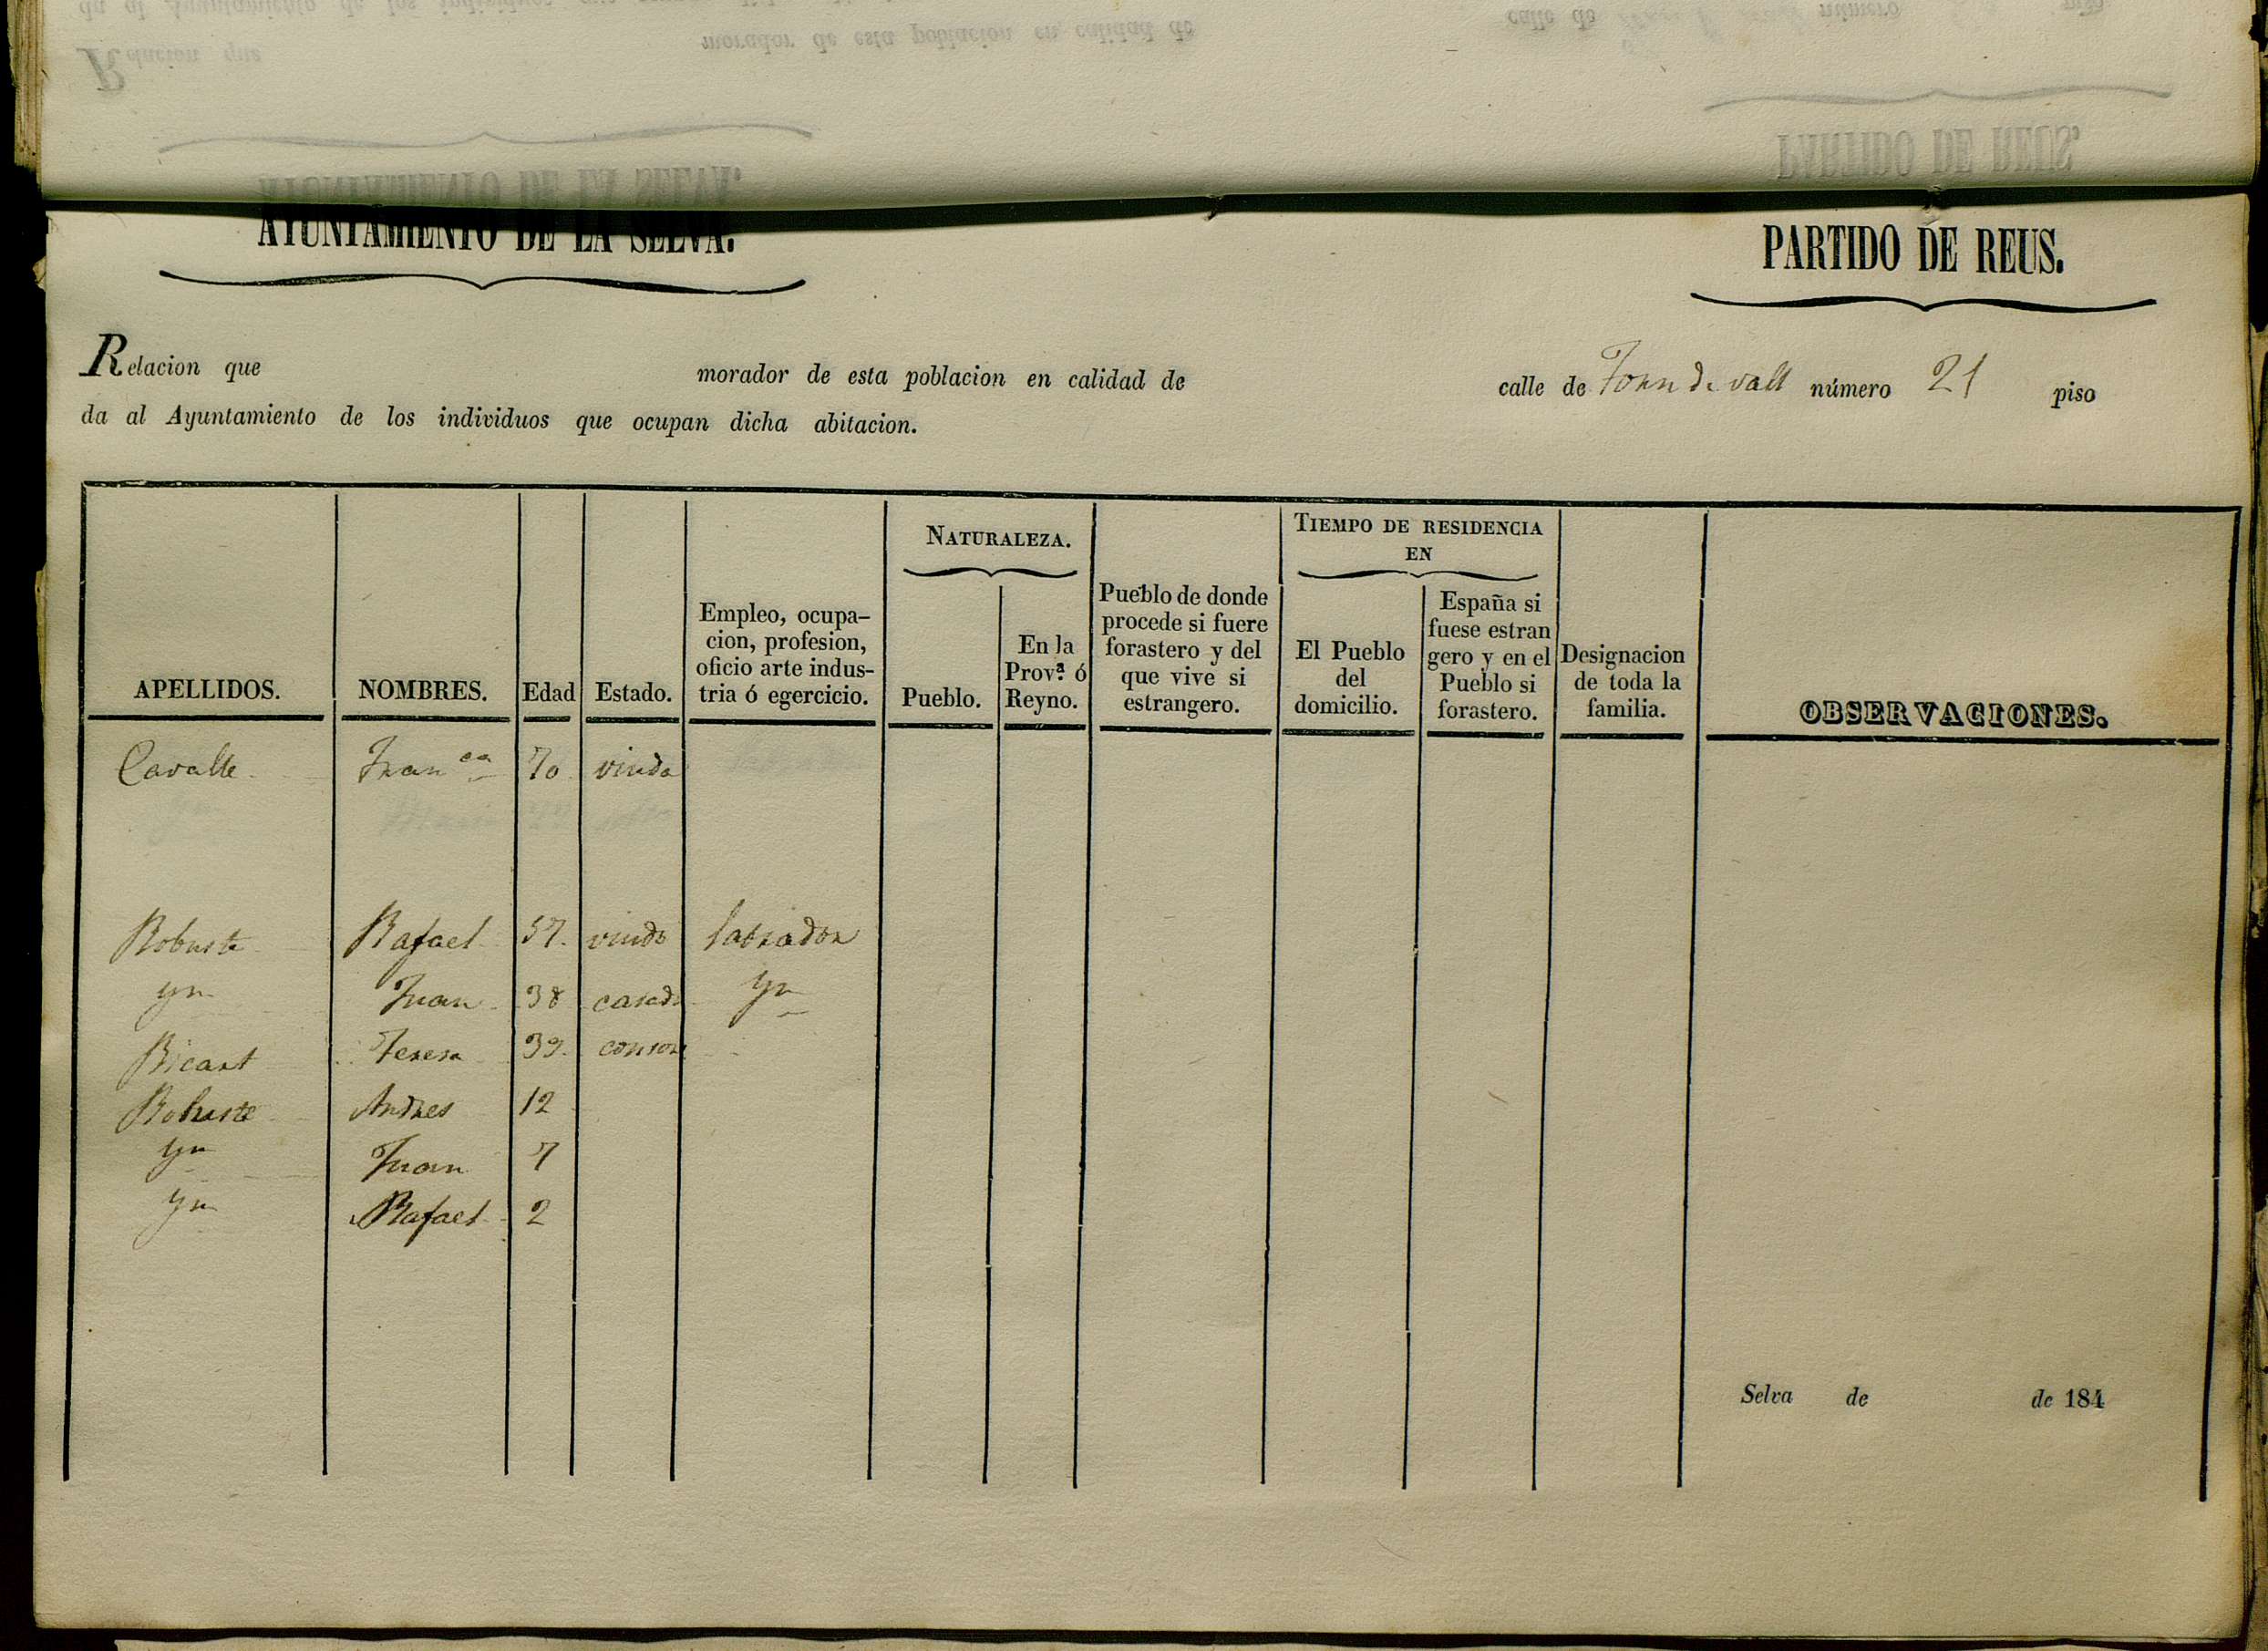 AYUNTAMIENTO DE LA SELVA.
PARTIDO DE REUS.
Relacion que morador de esta poblacion en calidad de calle de Forn de vall número 21 piso
da al Ayuntamiento de los individuos que ocupan dicha abitacion.
APELLIDOS. NOMBRES. Edad Estado. Empleo, ocupa-
cion, profesion,
oficio arte indus-
tria ó egercicio.
NATURALEZA.
Pueblo. En la
Prov.ª ó
Reyno.
Pueblo de donde
procede si fuere
forastero y del
que vive si
estrangero.
TIEMPO DE RESIDENCIA
EN
El Pueblo
del
domicilio.
España si
fuese estran
gero y en el
Pueblo si
forastero.
Designacion
de toda la
familia.
OBSERVACIONES.
Cavalle Fran.ca 70 viuda
Robuste Rafael 57. viudo labrador
yn Juan 38 casado yn
Ricart Teresa 39. consort
Robuste Andres 12
yn Juan 7
yn Rafael 2
Selva de de 184